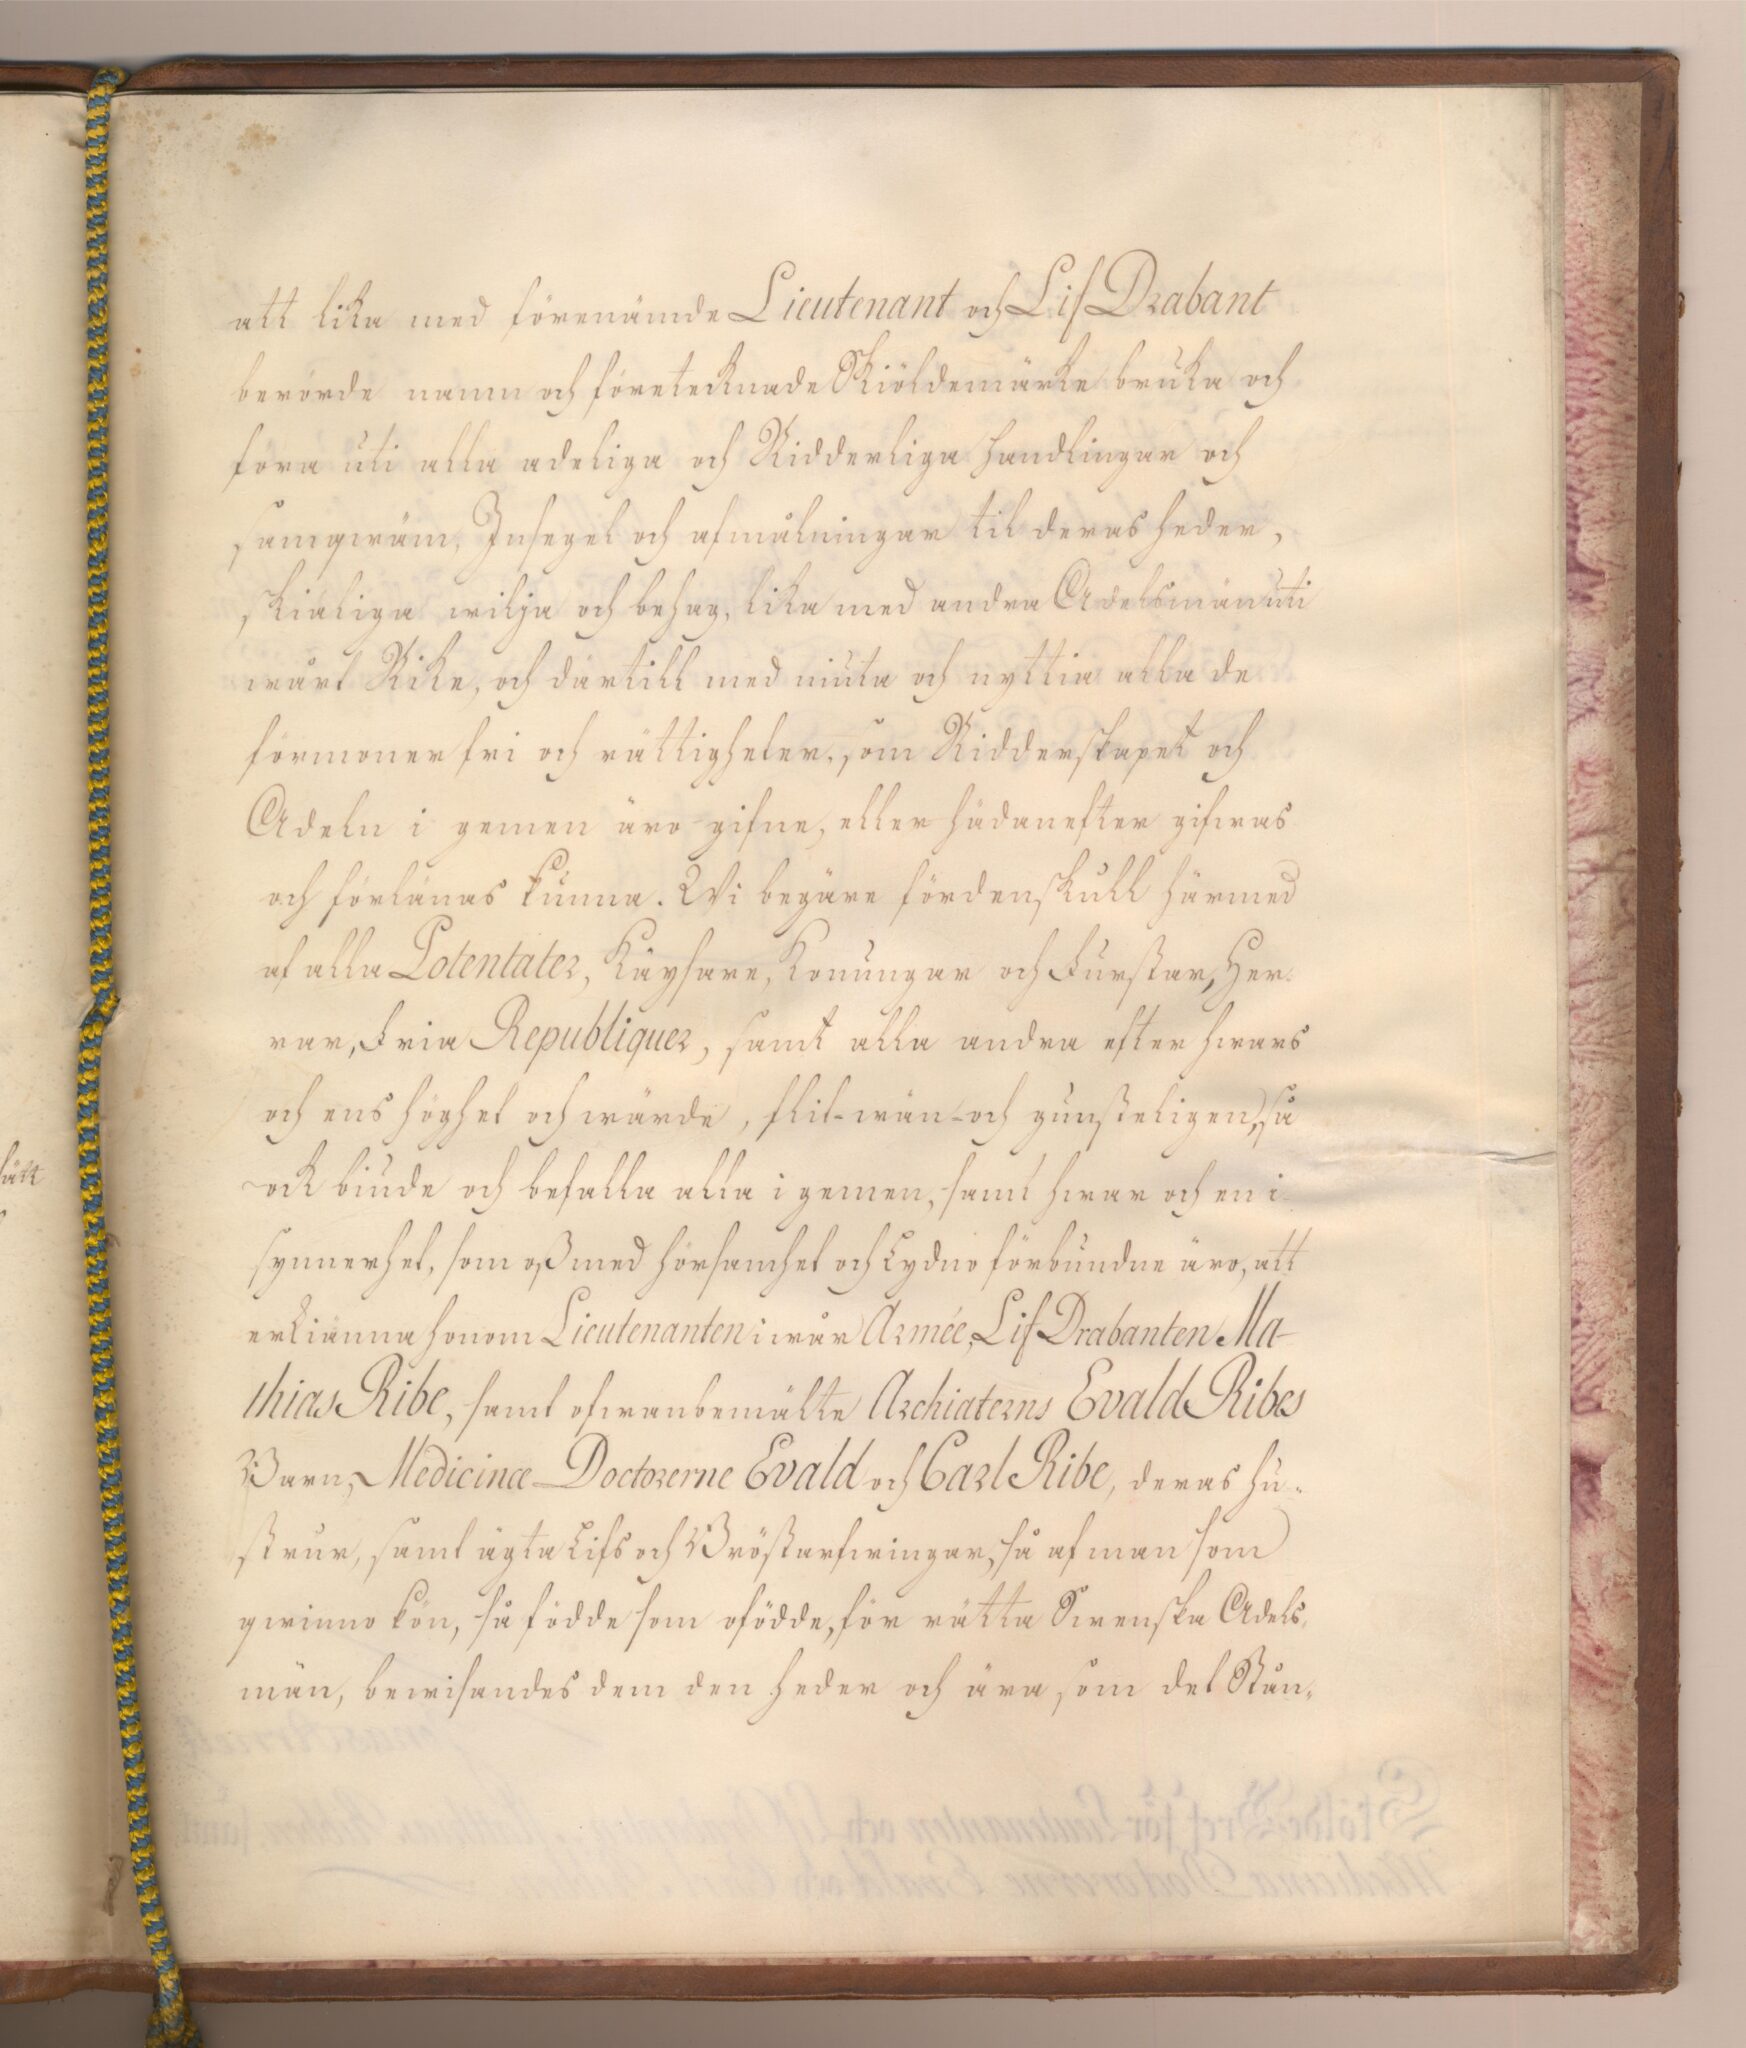 att lika med förenämde Lieutenant och Lif Drabant
berörde namn och företecknade Skiöldemärke bruka och
föra uti alla adeliga och Ridderliga handlingar och
samqwäm, Insegel och afmålningar til deras heder,
skiäliga wilja och behag, lika med andra Adelsmän uti
wårt Rike, och därtill med niuta och nyttia alla de
förmoner fri och rättigheter, som Ridderskapet och
Adeln i gemen äro gifne, eller hädanefter gifwas
och förlänas kunna. Wi begäre fördenskull härmed
af alla Potentater, Käysare, Konungar och Furstar, Her-
rar, Fria Republiquer, samt alla andra efter hwars
och ens höghet och wärde, flit-wän-och gunsteligen, så
ock biude och befalla alla i gemen, samt hwar och en i
synnerhet, som oß med hörsamhet och Lydno förbundne äro, att
erkiänna honom Lieutenanten i wår Armée, Lif Drabanten Ma-
thias Ribe, samt ofwanbemälte Archiaterns Evald Ribes
Barn, Medicinæ Doctorerne Evald och Carl Ribe, deras hu-
strur, samt ägta Lifs och Bröstarfwingar, så af man som
qwinno kön, så födde som ofödde, för rätta Swenska Adels-
män, bewisandes dem den heder och ära som det Stån-